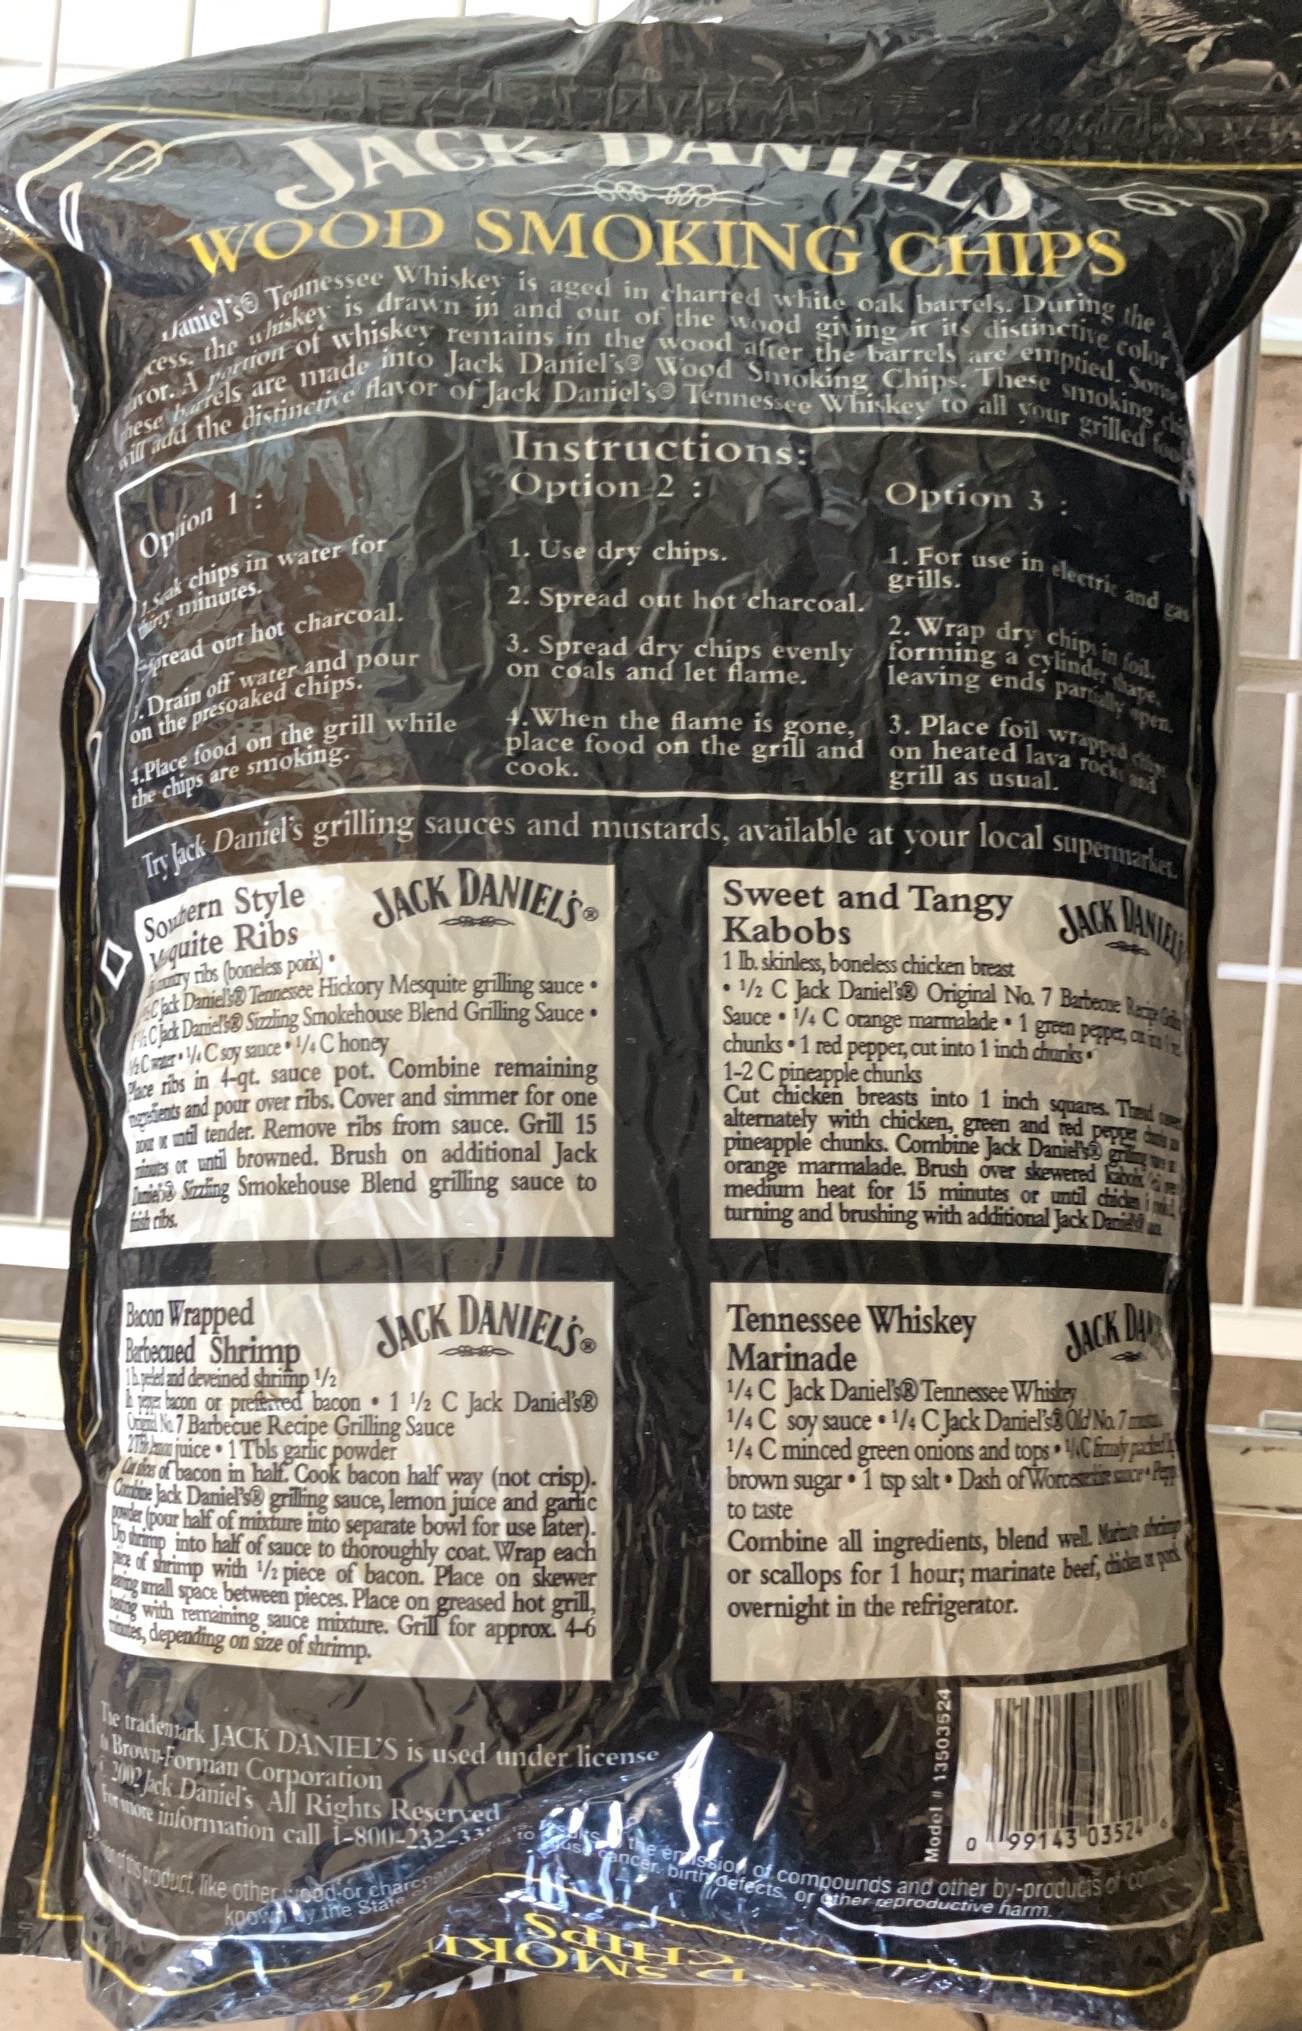 JACK DANIEL'S
WOOD SMOKING CHIPS
Daniel's® Tennessee Whiskey is aged in charred white oak barrels. During the
the whiskey is drawn in and out of the wood giving it its distinctive color
A portion of whiskey remains in the wood after the barrels are emptied. Some
these barrels are made into Jack Daniel's® Wood Smoking Chips. These smoking
will add the distinctive flavor of Jack Daniel's® Tennessee Whiskey to all your grilled
Instructions:
Option 1 :
1. Soak chips in water for
thirty minutes.
Spread out hot charcoal.
Drain off water and pour
on the presoaked chips.
4.Place food on the grill while
the chips are smoking.
Option 2 :
1. Use dry chips.
2. Spread out hot charcoal.
3. Spread dry chips evenly
on coals and let flame.
4.When the flame is gone,
place food on the grill and
cook.
Option 3 :
1. For use in electric and gas
grills.
2. Wrap dry chips in foil,
forming a cylinder shape,
leaving ends partially open.
3. Place foil wrapped chips
on heated lava rocks and
grill as usual.
Try Jack Daniel's grilling sauces and mustards, available at your local supermarket.
Southern Style
Mesquite Ribs
JACK DANIEL'S®
ribs (boneless pork) •
C Jack Daniel's® Tennessee Hickory Mesquite grilling sauce •
C Jack Daniel's® Sizzling Smokehouse Blend Grilling Sauce •
½ C water • ¼ C soy sauce • ¼ C honey
Place ribs in 4-qt. sauce pot. Combine remaining
ingredients and pour over ribs. Cover and simmer for one
hour or until tender. Remove ribs from sauce. Grill 15
minutes or until browned. Brush on additional Jack
Daniel's® Sizzling Smokehouse Blend grilling sauce to
finish ribs.
Sweet and Tangy
Kabobs
JACK DANIEL'S
1 lb. skinless, boneless chicken breast
• ½ C Jack Daniel's® Original No. 7 Barbecue Recipe
Sauce • ¼ C orange marmalade • 1 green pepper, cut
chunks • 1 red pepper, cut into 1 inch chunks •
1-2 C pineapple chunks
Cut chicken breasts into 1 inch squares. Thread
alternately with chicken, green and red pepper
pineapple chunks. Combine Jack Daniel's® grilling
orange marmalade. Brush over skewered kabobs
medium heat for 15 minutes or until chicken
turning and brushing with additional Jack Daniel's®
Bacon Wrapped
Barbecued Shrimp
JACK DANIEL'S®
1 lb. peeled and deveined shrimp ½
lb. pepper bacon or preferred bacon • 1 ½ C Jack Daniel's®
Original No. 7 Barbecue Recipe Grilling Sauce
2 Tbls lemon juice • 1 Tbls garlic powder
Cut slices of bacon in half. Cook bacon half way (not crisp).
Combine Jack Daniel's® grilling sauce, lemon juice and garlic
powder (pour half of mixture into separate bowl for use later).
Dip shrimp into half of sauce to thoroughly coat. Wrap each
piece of shrimp with ½ piece of bacon. Place on skewer
leaving small space between pieces. Place on greased hot grill,
basting with remaining sauce mixture. Grill for approx. 4-6
minutes, depending on size of shrimp.
Tennessee Whiskey
Marinade
JACK
¼ C Jack Daniel's® Tennessee Whiskey
¼ C soy sauce • ¼ C Jack Daniel's® Old No. 7
¼ C minced green onions and tops • ¼ C firmly packed
brown sugar • 1 tsp salt • Dash of Worcestershire sauce •
to taste
Combine all ingredients, blend well. Marinate shrimp
or scallops for 1 hour; marinate beef, chicken or pork
overnight in the refrigerator.
The trademark JACK DANIEL'S is used under license
to Brown-Forman Corporation
© 2002 Jack Daniel's, All Rights Reserved
For more information call 1-800-232-33
Model # 13503524
0 99143 03524 6
of this product, like other wood or
results in the emission of compounds and other by-products of
known by the State
to cause cancer, birth defects, or other reproductive harm.
CHIPS